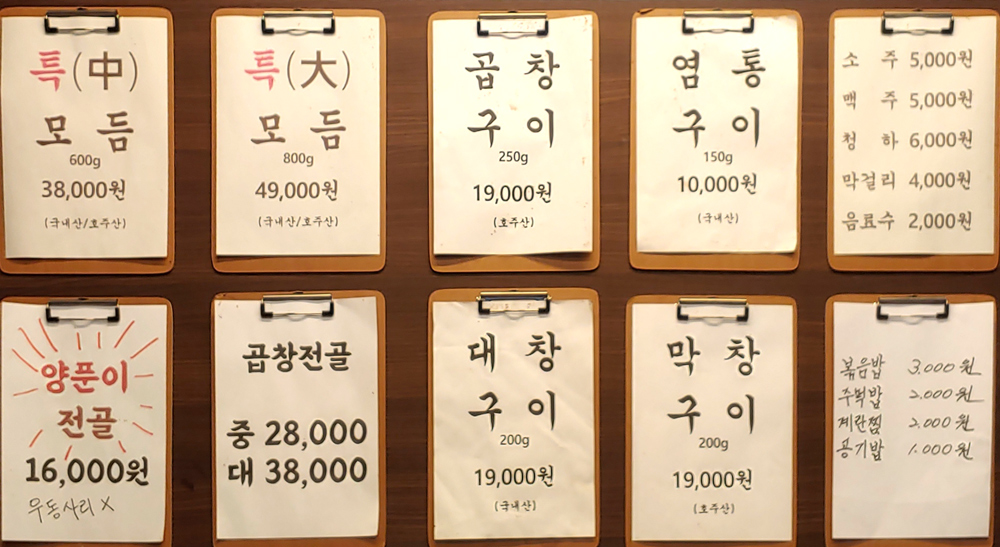 특(中)
모 듬
600g
38,000원
(국내산/호주산)
특(大)
모 듬
800g
49,000원
(국내산/호주산)
곱 창
구 이
250g
19,000원
(호주산)
염 통
구 이
150g
10,000원
(국내산)
소 주 5,000원
맥 주 5,000원
청 하 6,000원
막걸리 4,000원
음료수 2,000원
양푼이
전골
16,000원
우동사리 X
곱창전골
중 28,000
대 38,000
대 창
구 이
200g
19,000원
(국내산)
막 창
구 이
200g
19,000원
(호주산)
볶음밥 3.000원
주먹밥 2.000원
계란찜 2.000원
공기밥 1.000원